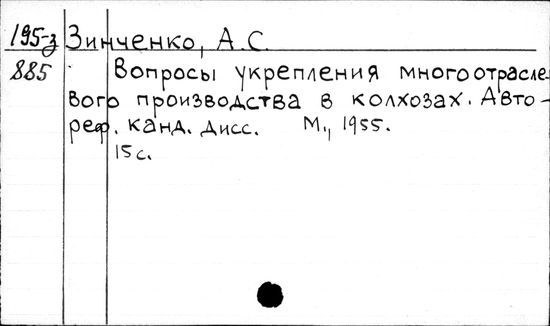 195-з Зинченко, А.С.
885 Вопросы укрепления многоотрасле
вого производства в колхозах. Авто-
реф. канд. дисс. М., 1955.
15с.